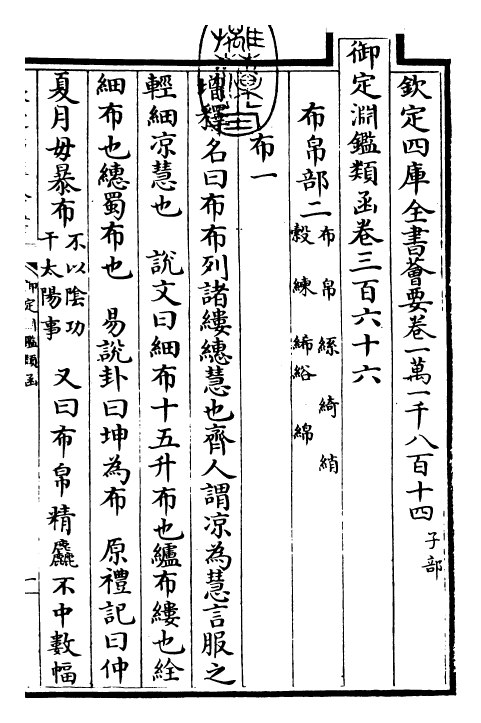 欽定四庫全書薈要卷一萬一千八百十四 子部
御定淵鑑類函卷三百六十六
布帛部二 布 帛 絲 綺 綃
縠 練 絺綌 綿
布一
增釋名曰布布列諸縷繐慧也齊人謂凉為慧言服之
輕細凉慧也 說文曰細布十五升布也纑布縷也絟
細布也繐蜀布也 易說卦曰坤為布 原禮記曰仲
夏月毋暴布 不以陰功
干太陽事 又曰布帛精麤不中數幅
御定淵鑑類函